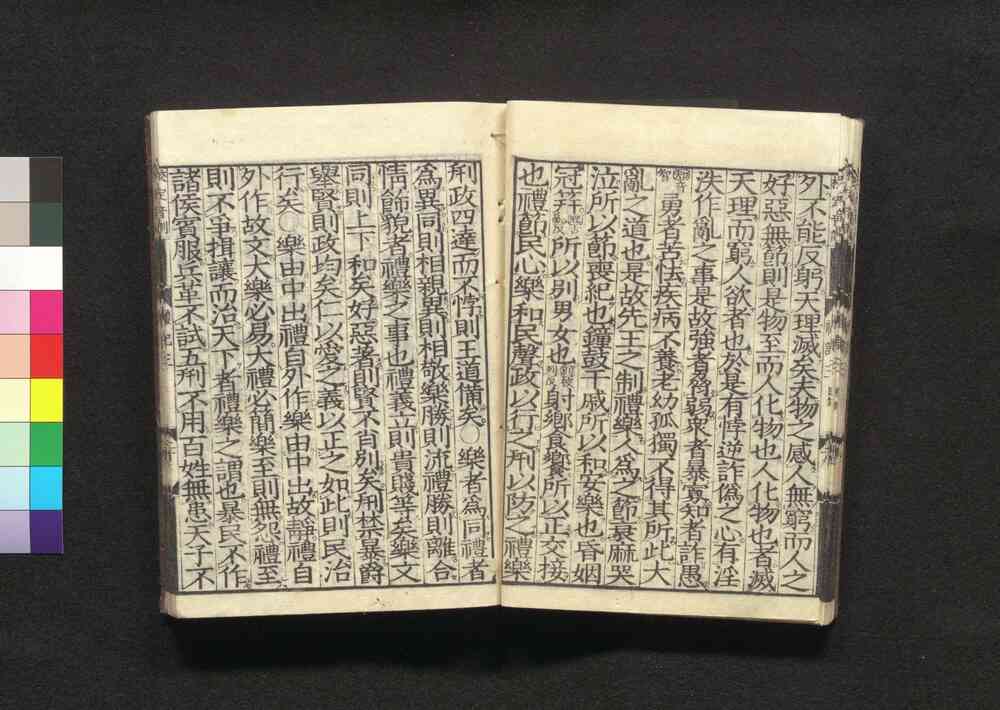 外不能反躬天理滅矣夫物之感人無窮而人之
好惡無節則是物至而人化物也人化物也者滅
天理而窮人欲者也於是有悖逆詐僞之心有淫
泆作亂之事是故強者脅弱衆者暴寡知者詐愚
勇者苦怯疾病不養老幼孤獨不得其所此大
亂之道也是故先王之制禮樂人爲之節衰麻哭
泣所以節喪紀也鐘鼓干戚所以和安樂也昏姻
冠笄所以別男女也射鄉食饗所以正交接
也禮節民心樂和民聲政以行之刑以防之禮樂
刑政四達而不悖則王道備矣○樂者爲同禮者
爲異同則相親異則相敬樂勝則流禮勝則離合
情飾貌者禮樂之事也禮義立則貴賤等矣樂文
同則上下和矣好惡著則賢不肖別矣刑禁暴爵
舉賢則政均矣仁以愛之義以正之如此則民治
行矣○樂由中出禮自外作樂由中出故靜禮自
外作故文大樂必易大禮必簡樂至則無怨禮至
則不爭揖讓而治天下者禮樂之謂也暴民不作
諸侯賓服兵革不試五刑不用百姓無患天子不